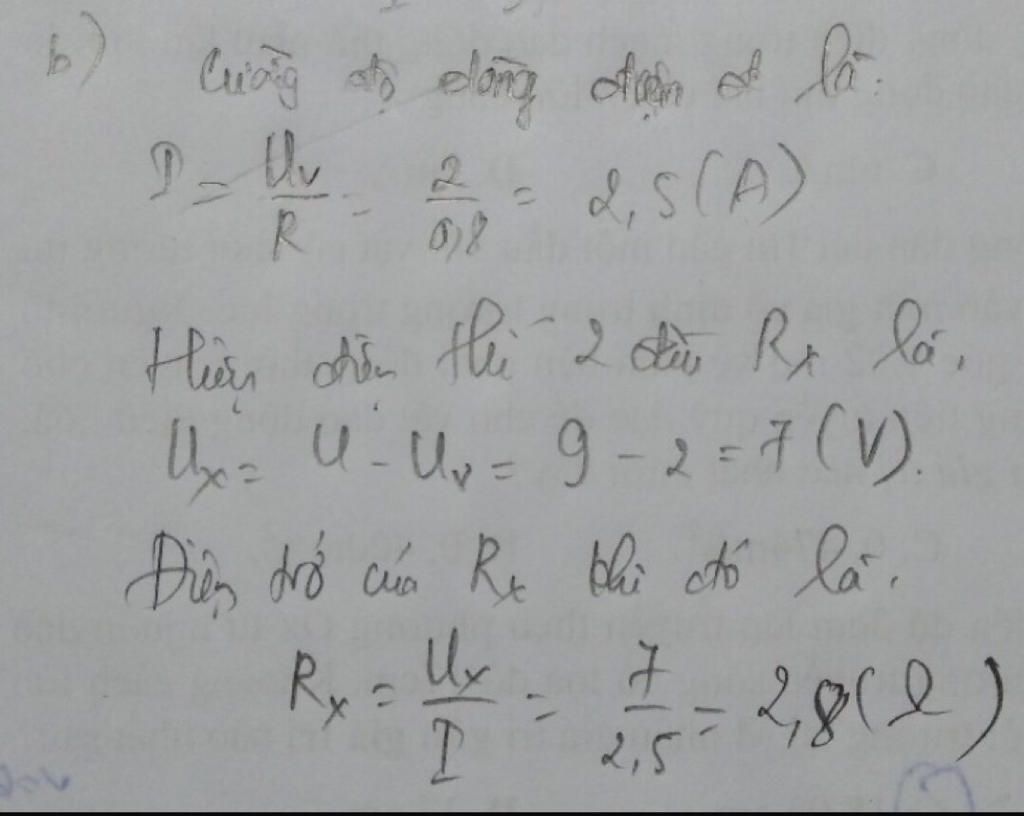 b) Cường độ dòng điện là:
I = Uv/R = 2/0,8 = 2,5 (A)
Hiệu điện thế 2 đầu Rx là,
Ux = U - Uv = 9 - 2 = 7 (V).
Điện trở của Rx khi đó là,
Rx = Ux/I = 7/2,5 = 2,8 (Ω)